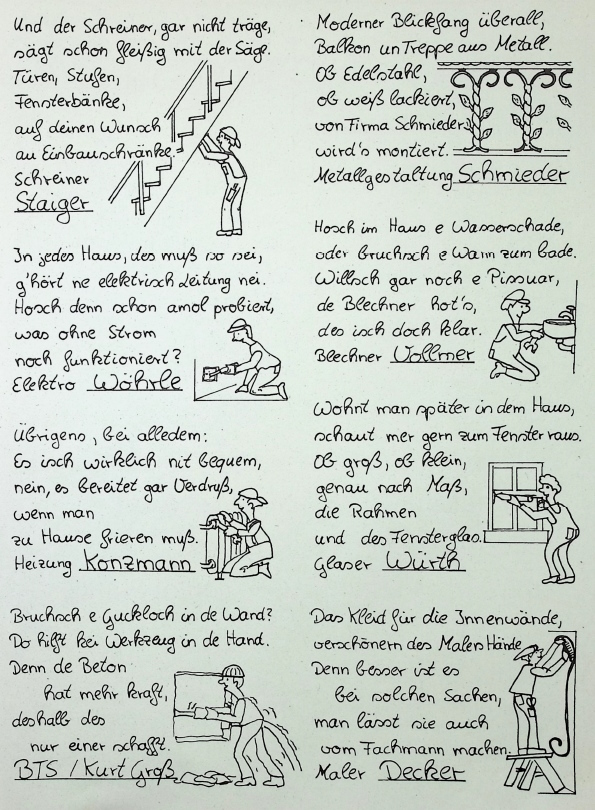 Und der Schreiner, gar nicht träge,
sägt schon fleißig mit der Säge.
Türen, Stufen,
Fensterbänke,
auf deinen Wunsch
au Einbauschränke.
Schreiner
Staiger
In jedes Haus, des muß so sei,
g'hört ne elektrisch Leitung nei.
Hosch denn schon amol probiert,
was ohne Strom
noch funktioniert?
Elektro Wöhrle
Übrigens, bei alledem:
Es isch wirklich nit bequem,
nein, es bereitet gar Verdruß,
wenn man
zu Hause frieren muß.
Heizung Konzmann
Bruchsch e Guckloch in de Wand?
Do hilft kei Werkzeug in de Hand.
Denn de Beton
hat mehr Kraft,
deshalb des
nur einer schafft.
BTS / Kurt Groß
Moderner Blickfang überall,
Balkon un Treppe aus Metall.
Ob Edelstahl,
ob weiß lackiert,
von Firma Schmieder
wird's montiert.
Metallgestaltung Schmieder
Hosch im Haus e Wasserschade,
oder bruchsch e Wann zum bade.
Willsch gar noch e Pissuar,
de Blechner hot's,
des isch doch klar.
Blechner Vollmer
Wohnt man später in dem Haus,
schaut mer gern zum Fenster raus.
Ob groß, ob klein,
genau nach Maß,
die Rahmen
und des Fensterglas.
Glaser Würth
Das Kleid für die Innenwände,
verschönern des Malers Hände.
Denn besser ist es
bei solchen Sachen,
man lässt sie auch
vom Fachmann machen.
Maler Decker